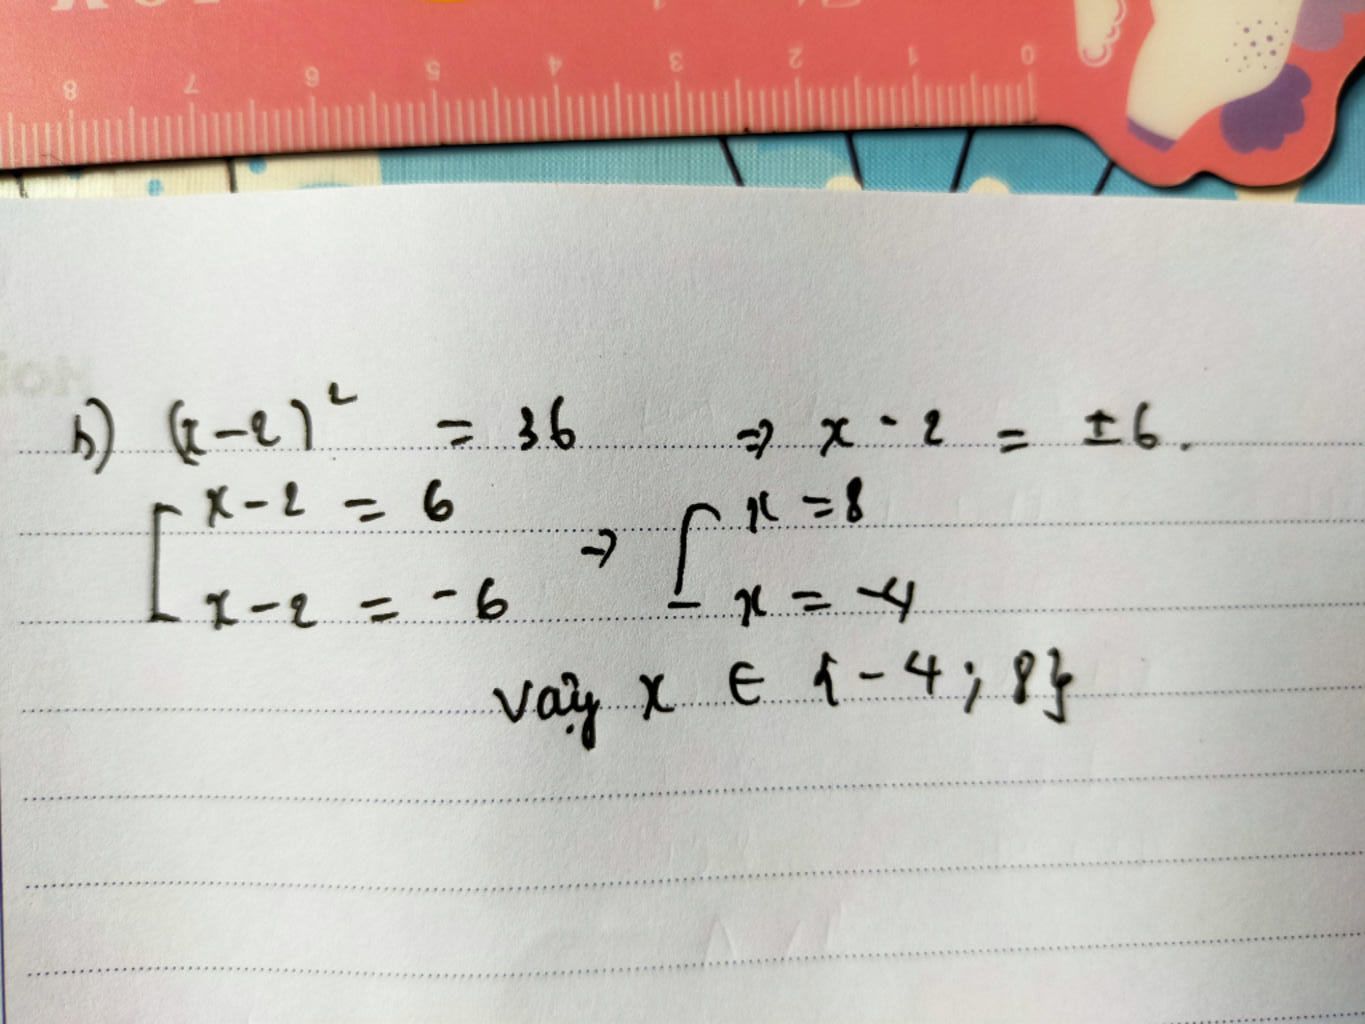 8 7 6 5 4 3 2 1 0
b) (x-2)² = 36 => x - 2 = ±6.
[ x-2 = 6 => [ x = 8
x-2 = -6 x = -4
vậy x ∈ {-4; 8}